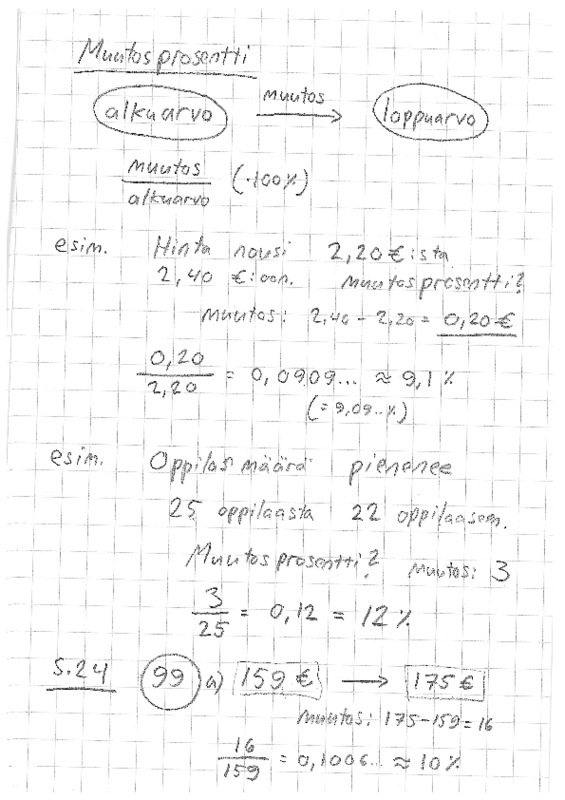 Muutosprosentti
alkuarvo muutos → loppuarvo
muutos / alkuarvo (·100%)
esim. Hinta nousi 2,20 €:sta
2,40 €:oon. Muutosprosentti?
Muutos: 2,40 - 2,20 = 0,20 €
0,20 / 2,20 = 0,0909... ≈ 9,1 %
(= 9,09..%)
esim. Oppilasmäärä pienenee
25 oppilaasta 22 oppilaasen.
Muutosprosentti? Muutos: 3
3 / 25 = 0,12 = 12 %
s.24 99 a) 159 € → 175 €
Muutos: 175-159=16
16 / 159 = 0,1006... ≈ 10 %